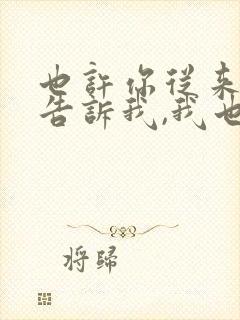 也許你從来
告訴我,我也
将歸